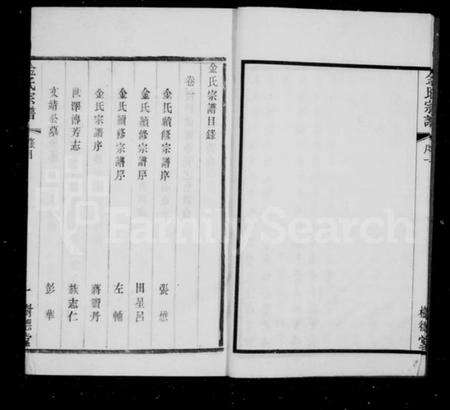 金氏宗譜
序一
樹德堂
金氏宗譜目錄
卷一
金氏續修宗譜序 張
金氏續修宗譜序 田星呂
金氏續修宗譜序 左輔
金氏宗譜序 蔣習丹
世澤傳芳志 狄志仁
文靖公墓 彭華
金氏宗譜
目
一 樹德堂
FamilySearch